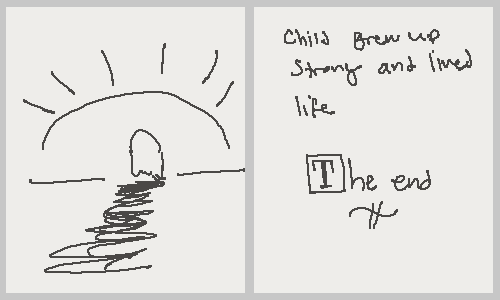 Child Grew up
Strong and lived
life
The end